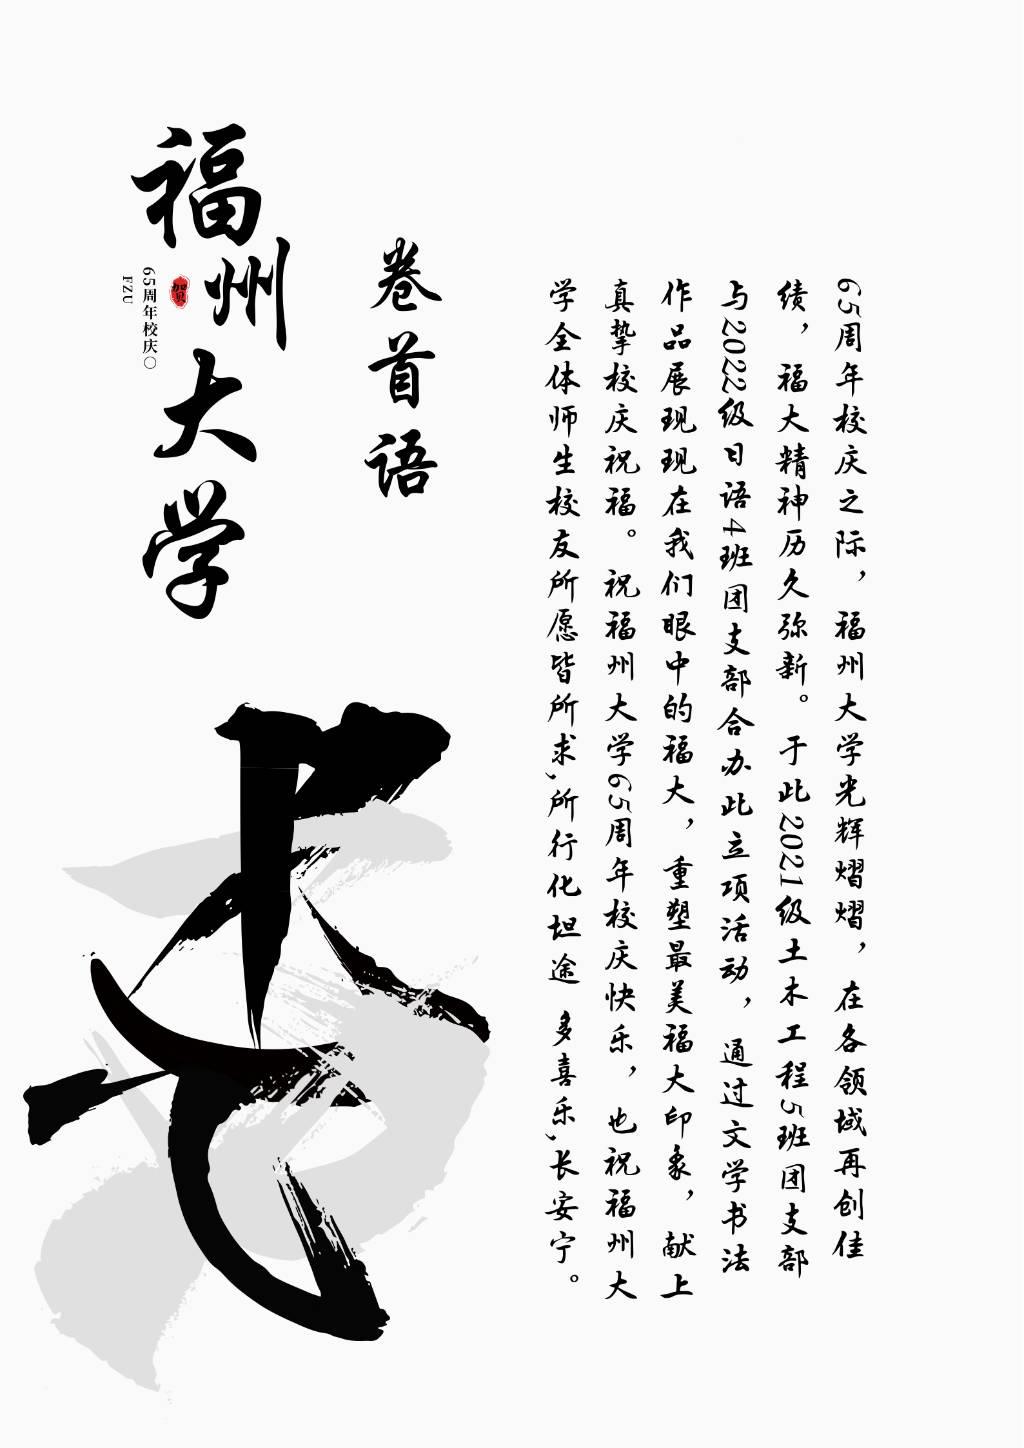 65周年校庆之际，福州大学光辉熠熠，在各领域再创佳
绩，福大精神历久弥新。于此2021级土木工程5班团支部
与2022级日语4班团支部合办此立项活动，通过文学书法
作品展现现在我们眼中的福大，重塑最美福大印象，献上
真挚校庆祝福。祝福州大学65周年校庆快乐，也祝福州大
学全体师生校友所愿皆所求,所行化坦途 多喜乐,长安宁。
卷首语
福州大学
贺
65周年校庆○
FZU